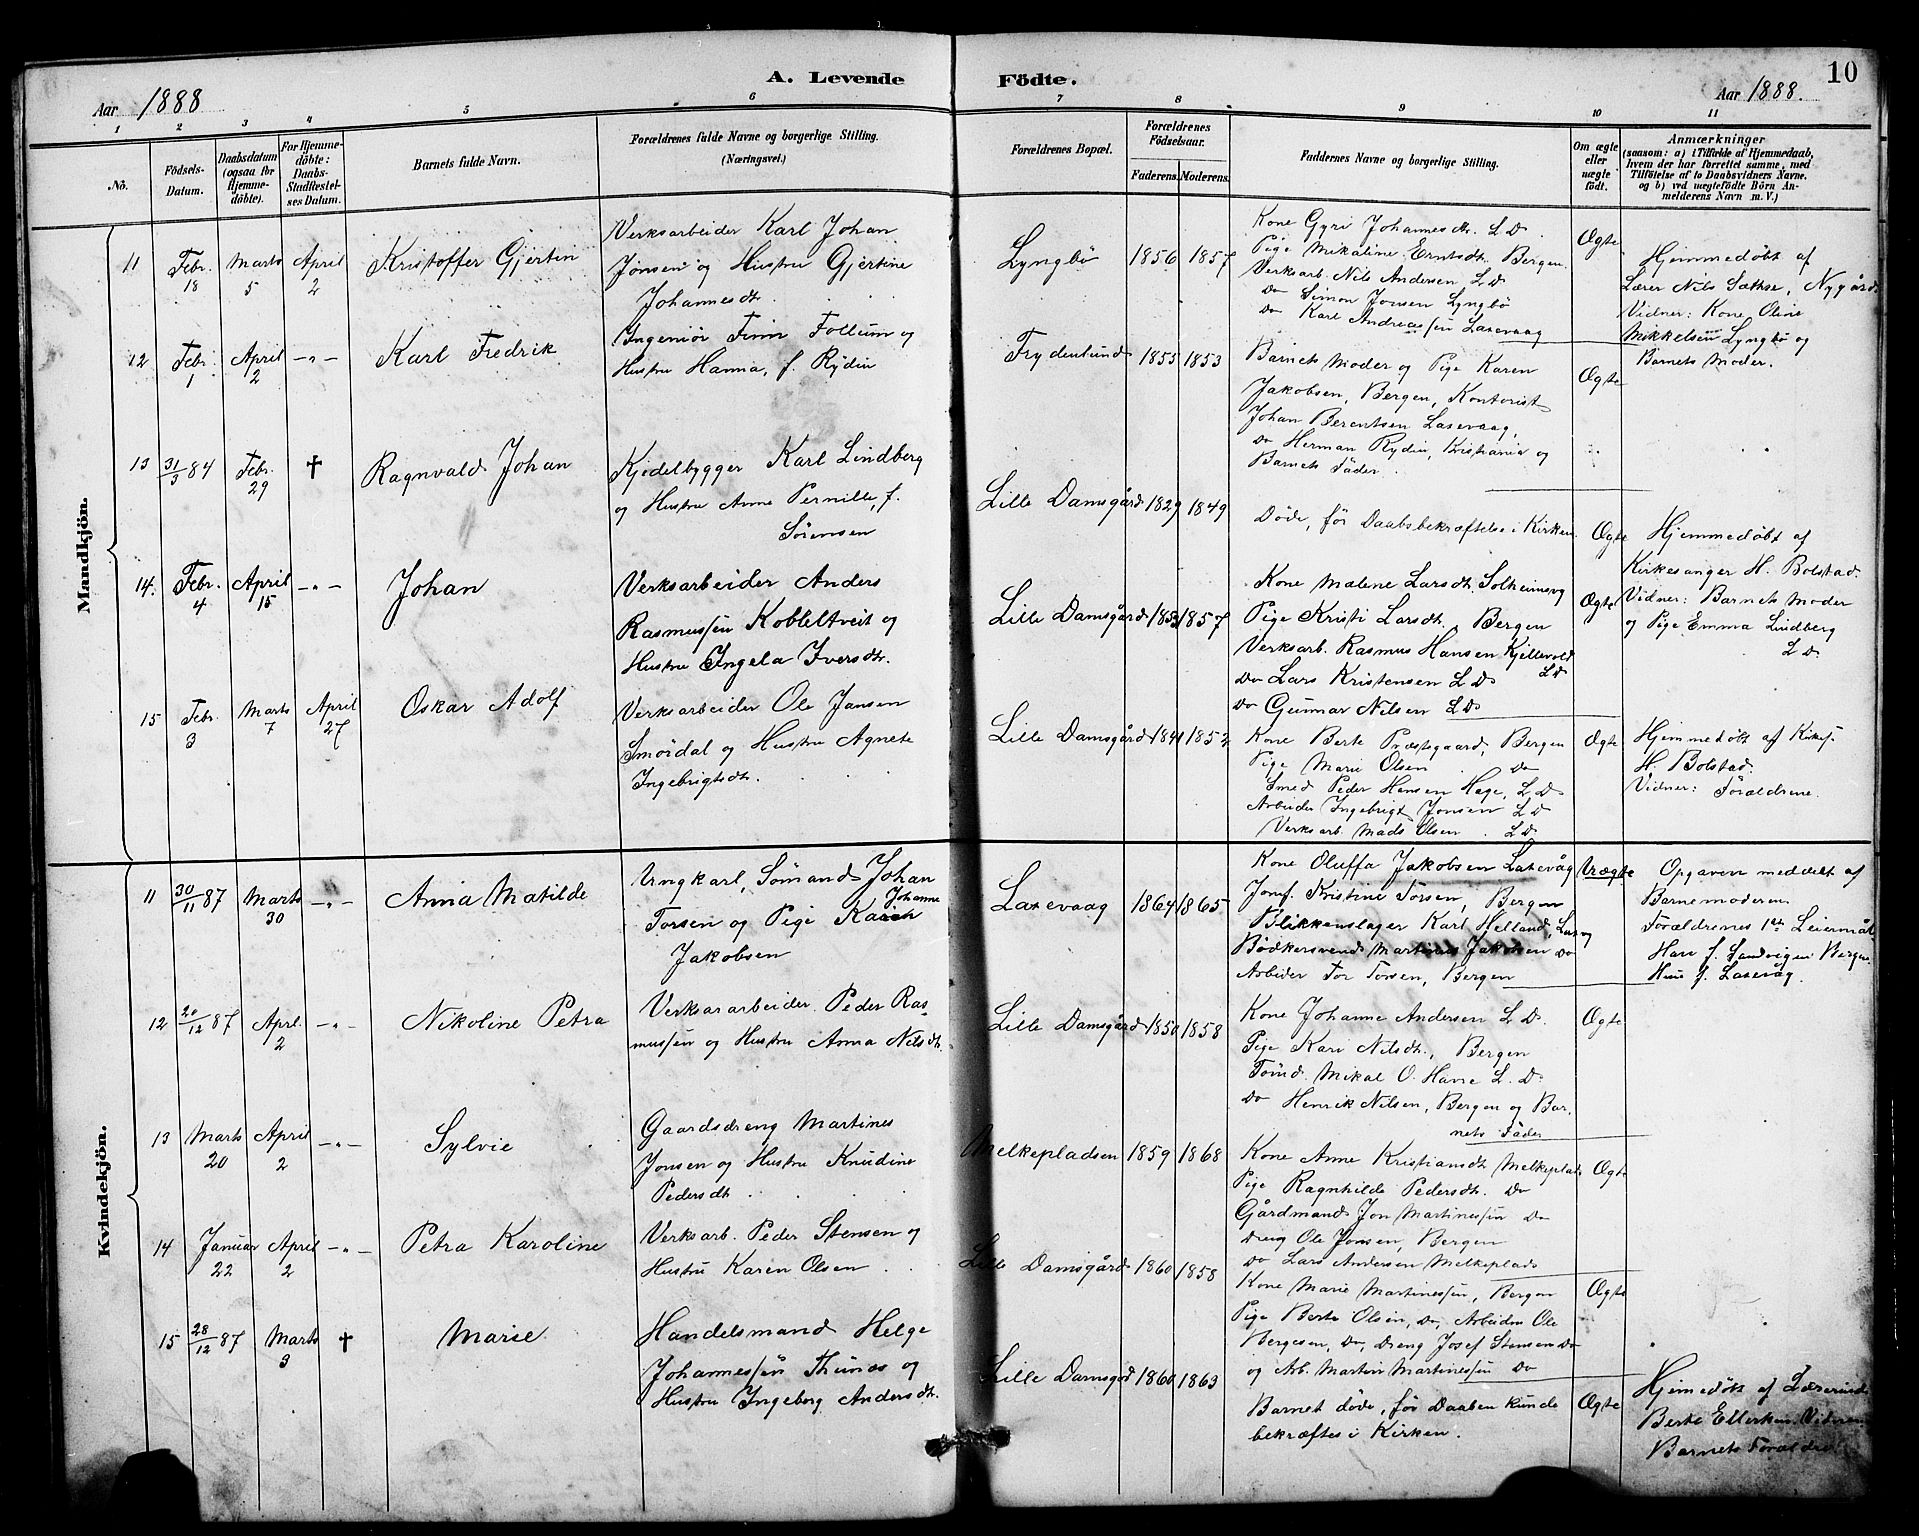 A. Levende Födte.
10
Aar 1888
Aar 1888.
1 2 3 4 5 6 7 8 9 10 11
No.
Födsels-
Datum.
Daabsdatum
(ogsaa for
Hjemme-
döbte).
For Hjemme-
döbte:
Daabs-
Stadfæstel-
ses Datum.
Barnets fulde Navn.
Forældrenes fulde Navne og borgerlige Stilling.
(Næringsvei.)
Forældrenes Bopæl.
Forældrenes
Födselsaar.
Faderens. Moderens.
Faddernes Navne og borgerlige Stilling.
Om ægte
eller
uægte
födt.
Anmærkninger
(saasom: a) i Tilfælde af Hjemmedaab,
hvem der har forrettet samme, med
Tilföielse af to Daabsvidners Navne.
og b) ved uægtefödte Börn An-
melderens Navn m. V.)
Mandkjön.
11
Febr.
18
Marts
5
April
2
Kristoffer Gjertin
Verksarbeider Karl Johan
Jonsen og Hustru Gjertine
Johannesdtr.
Lyngbö
1856 1857
Kone Gyri Johannesdtr. L D.
Pige Mikaline Erntsdtr. Bergen
Verksarb. Nils Andersen L D
Do Simon Jonsen Lyngbö
Do Karl Andreassen Laxevaag
Ægte
Hjemmedöbt af
Lærer Nils Sæthre, Nygård
Vidner: Kone Oline
Mikkelsen Lyngbö og
Barnets Moder.
12
Febr.
1
April
2
-"-
Karl Fredrik
Ingeniör Finn Follum og
Hustru Hanna, f. Rydin
Frydenlund
1855 1853
Barnets Moder og Pige Karen
Jakobsen, Bergen, Kontorist
Johan Berentsen Laxevaag,
Do Herman Rydin, Kristiania og
Barnets Fader.
Ægte
13
31/3 84
Febr.
29
†
Ragnvald Johan
Kjedelbygger Karl Lindberg
og Hustru Anne Pernille, f.
Sörensen
Lille Damsgård
1829 1849
Döde, för Daabsbekræftelse i Kirken.
Ægte
Hjemmedöbt af
Kirkesanger H. Bolstad.
Vidner: Barnets Moder
og Pige Emma Lindberg
L D.
14.
Febr.
4
April
15
-"-
Johan
Verksarbeider Anders
Rasmussen Kobbeltveit og
Hustru Ingela Iversdtr.
Lille Damsgård
1853 1857
Kone Malene Larsdtr. Solheimsvg
Pige Kristi Larsdtr. Bergen
Verksarb. Rasmus Hansen Kjellevold
L D
Do Lars Kristensen L D
Do Gunnar Nilsen L D
Ægte
15
Febr.
3
Marts
7
April
27
Oskar Adolf
Verksarbeider Ole Jansen
Smördal og Hustru Agnete
Ingebrigtsdtr.
Lille Damsgård
1841 1852
Kone Berte Præstegaard, Bergen
Pige Marie Olsen Do
Smed Peder Hansen Hage, L D
Arbeider Ingebrigt Jonsen L D
Verksarb. Mads Olsen L D
Ægte
Hjemmedöbt af Kirkes.
H. Bolstad.
Vidner: Forældrene.
Kvindekjön.
11
30/11 87
Marts
30
-"-
Anna Matilde
Ungkarl, Sömand Johan
Johanne
Torsen og Pige Karen
Jakobsen
Laxevaag
1864 1865
Kone Oluffa Jakobsen Laxevåg
Jomf. Kristine Torsen, Bergen
Blikkenslager Karl Helland, Laxvg
Bödkersvend Martines Jakobsen Do
Arbeider Tor Torsen, Bergen
Uægte
Opgaven meddelt af
Barnemoderen
Forældrenes 1ste Leiermål
Han f. Sandvigen Bergen.
Hun f. Laxevåg.
12
20/12 87
April
2
-"-
Nikoline Petra
Verksararbeider Peder Ras-
mussen og Hustru Anna Nilsdtr.
Lille Damsgård
1850 1858
Kone Johanne Andersen L D.
Pige Kari Nilsdtr., Bergen
Tömd. Mikal O. Havre L. D.
Do Henrik Nilsen, Bergen og Bar-
nets Fader
Ægte
13
Marts
20
April
2
-"-
Sylvie
Gaardsdreng Martines
Jonsen og Hustru Knudine
Pedersdtr.
Melkepladsen
1859 1868
Kone Anne Kristiansdtr Melkeplads
Pige Ragnhilde Pedersdtr. Do
Gårdmand Jon Martinessen Do
Dreng Ole Jonsen, Bergen
Do Lars Andersen Melkeplads
Ægte
14
Januar
22
April
2
-"-
Petra Karoline
Verksarb. Peder Stensen og
Hustru Karen Olsen
Lille Damsgård
1860 1858
Kone Marie Martinessen, Bergen
Pige Berte Olsen, Do, Arbeider Ole
Bergesen, Do, Dreng Josef Stensen Do
og Arb. Martin Martinessen Do
Ægte
15
28/12 87
Marts
3
†
Marie
Handelsmand Helge
Johannessen Thunæs og
Hustru Ingeborg Andersdtr.
Lille Damsgd
1860 1863
Barnet döde, för Daaben kunde
bekræftes i Kirken.
Ægte
Hjemedöbt af Lærerinde
Berte Ellerksen. Vidner
Barnets Forældre.